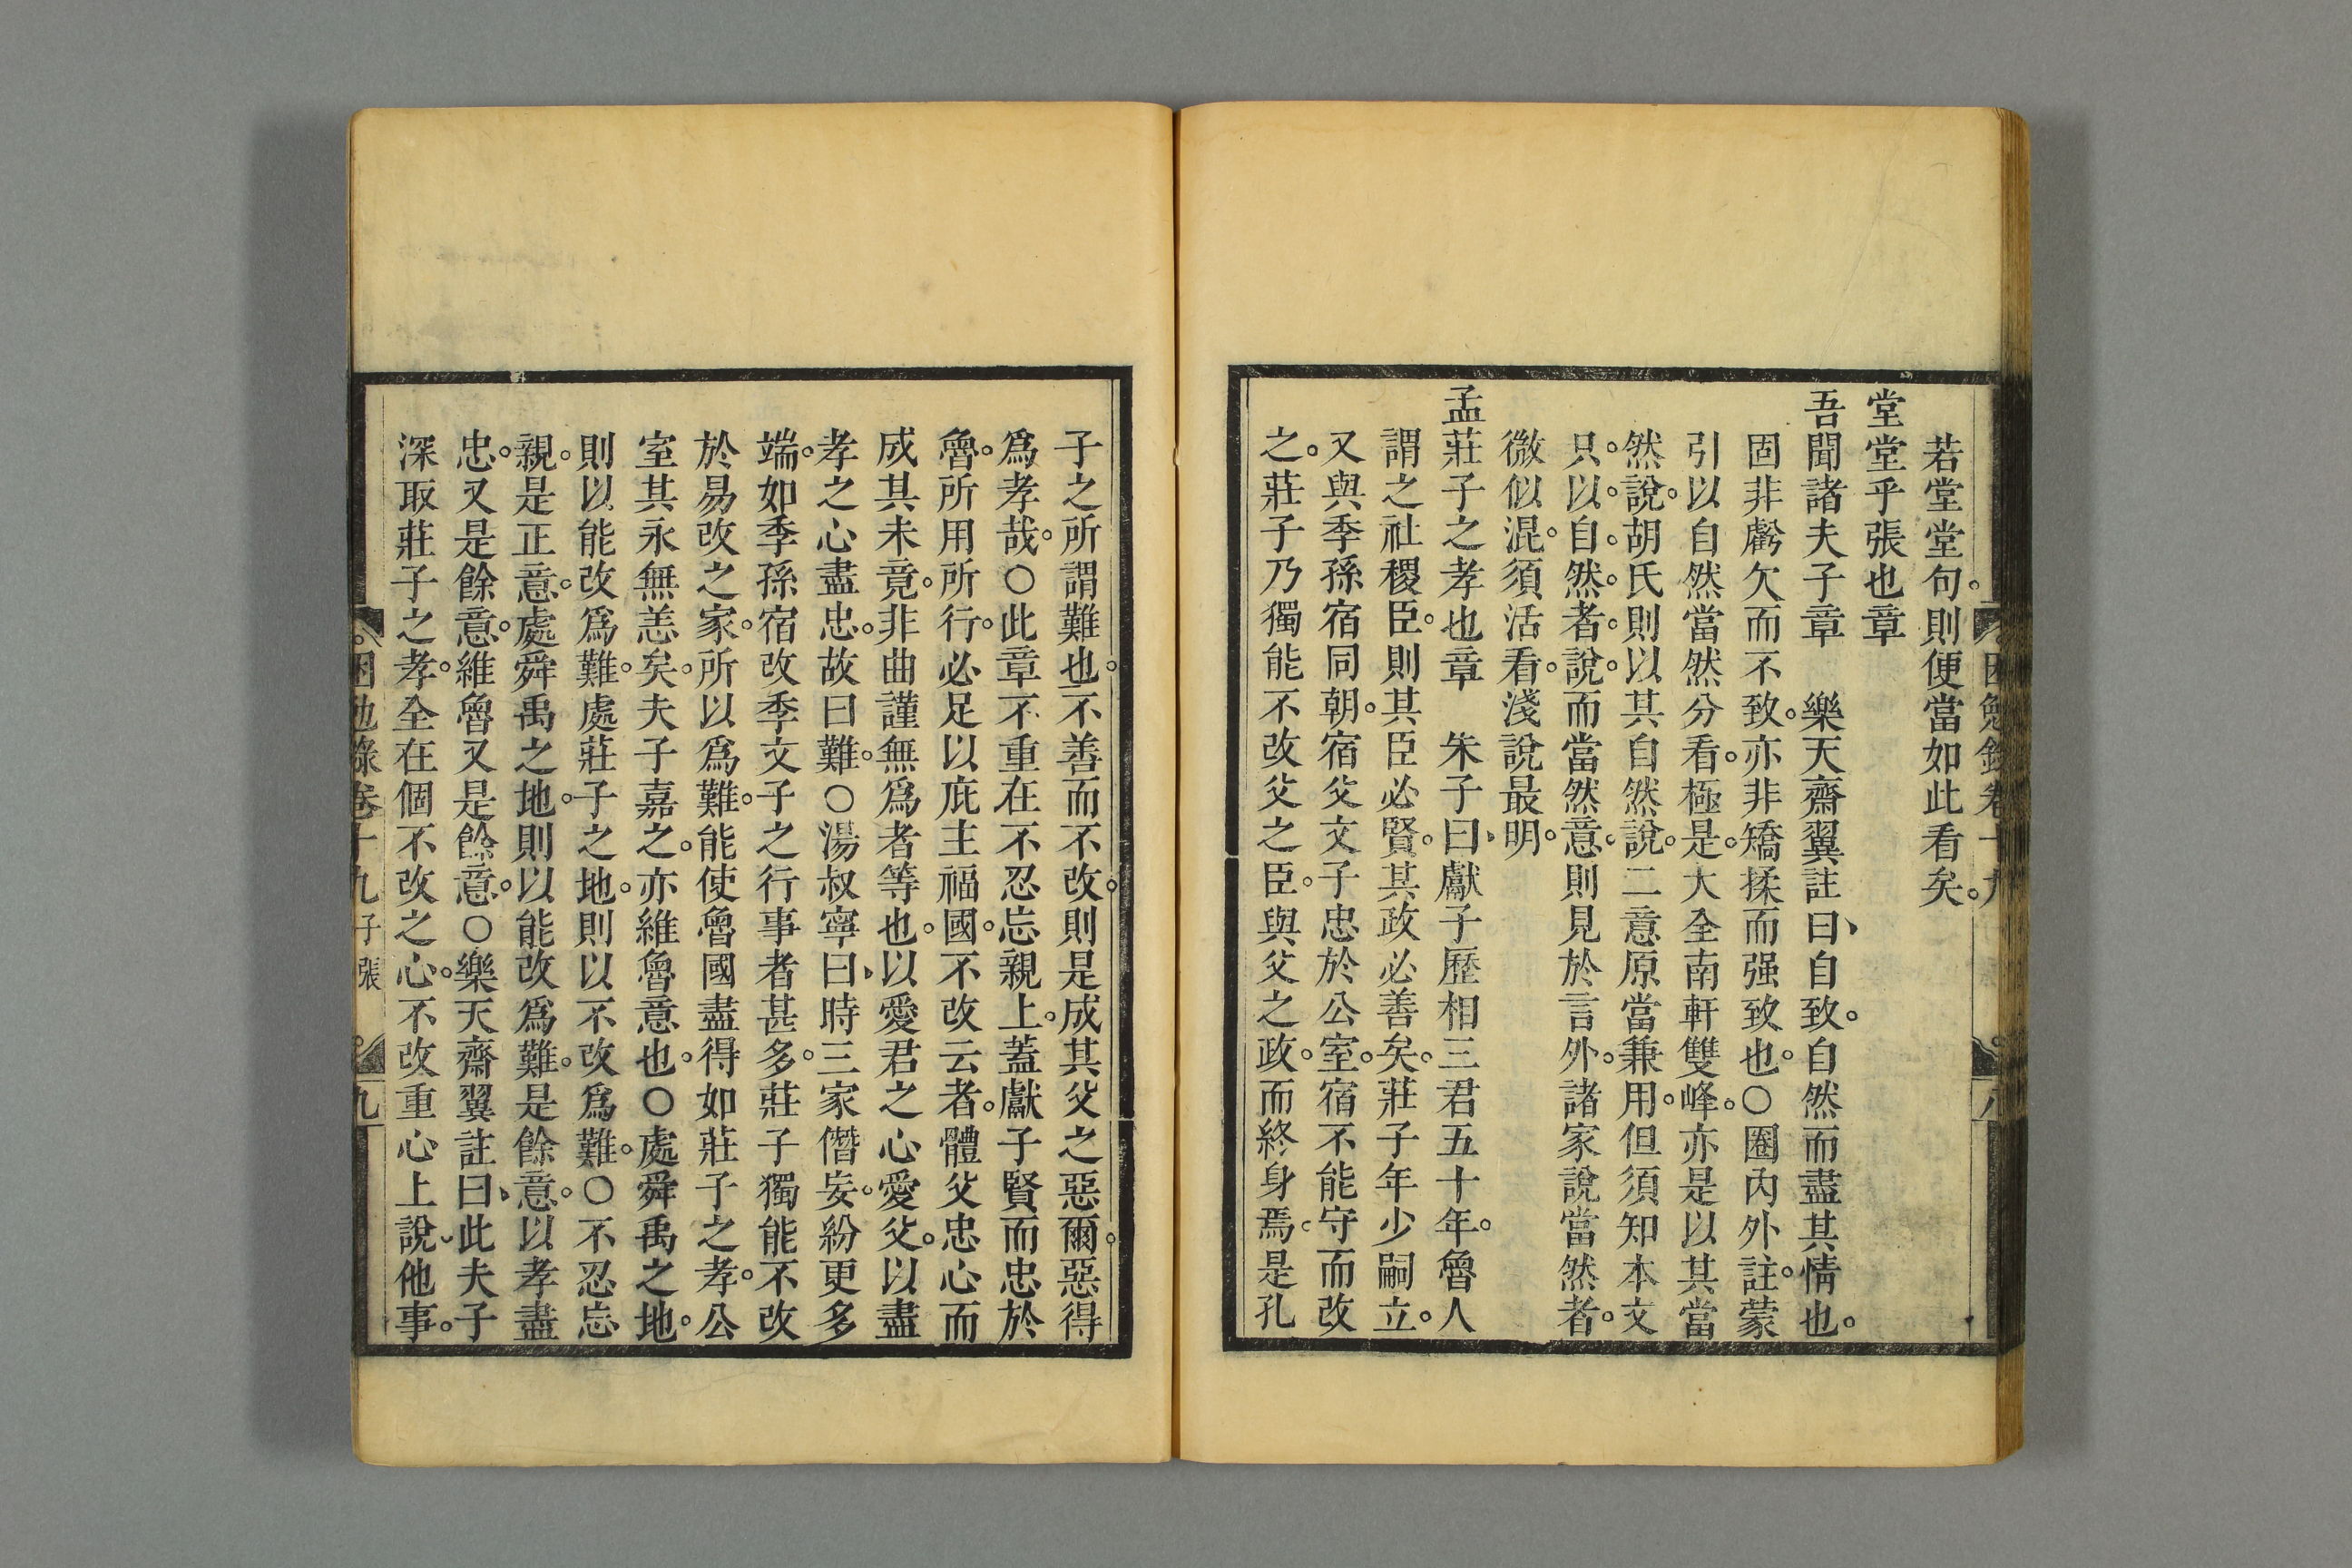 若堂堂句。則便當如此看矣。
堂堂乎張也章
吾聞諸夫子章　樂天齋翼註曰、自致。自然而盡其情也。
固非虧欠而不致。亦非矯揉而强致也。○圈內外註。蒙
引以自然當然分看。極是。大全南軒雙峰。亦是以其當
然說。胡氏則以其自然說。二意原當兼用。但須知本文
只。以。自。然。者。說。而當然意。則見於言外。諸家說當然者。
微似混。須活看。淺說最明。
孟莊子之孝也章　朱子曰、獻子歷相三君五十年。魯人
謂之社稷臣。則其臣必賢。其政必善矣。莊子年少嗣立。
又與季孫宿同朝。宿父文子忠於公室。宿不能守而改
之。莊子乃獨能不改父之臣。與父之政。而終身焉。是孔
子之所謂難也。不善而不改。則是成其父之惡爾。惡得
爲孝哉。○此章不重在不忍忘親上。蓋獻子賢而忠於
魯。所用所行。必足以庇主福國。不改云者。體父忠心而
成其未竟。非曲謹無爲者等也。以愛君之心愛父。以盡
孝之心盡忠。故曰難。○湯叔寧曰、時三家僭妄。紛更多
端。如季孫宿改季文子之行事者甚多。莊子獨能不改
於易改之家。所以爲難。能使魯國盡得如莊子之孝。公
室其永無恙矣。夫子嘉之。亦維魯意也。○處舜禹之地。
則以能改爲難。處莊子之地。則以不改爲難。○不忍忘
親。是正意。處舜禹之地。則以能改爲難。是餘意。以孝盡
忠。又是餘意。維魯又是餘意。○樂天齋翼註曰、此夫子
深取莊子之孝。全在個不改之心。不改重心上說、他事。
困勉錄卷十九 子張 九